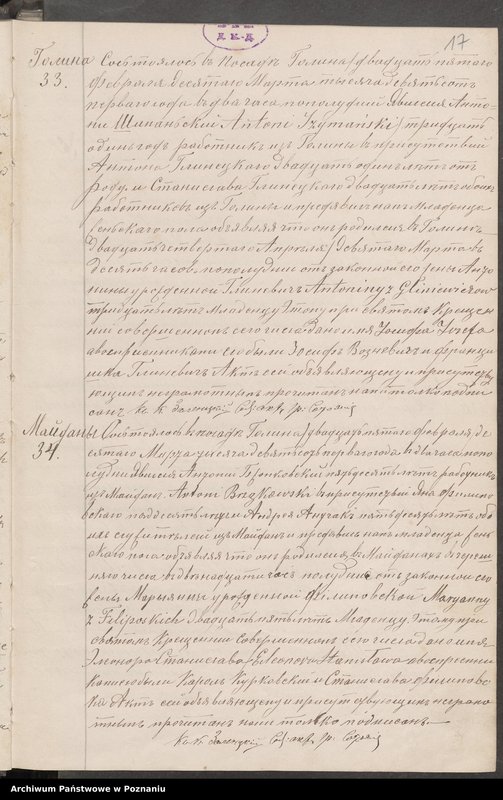 17
Голина
33.
Состоялось въ посадѣ Голина двадцать пятаго
февраля десятаго Марта тысяча девятьсотъ
перваго года въ два часа пополудни Явился Анто-
ни Шиманьскій Antoni Szymański тридцать
одинъ годъ работникъ изъ Голины въ присутствіи
Антона Глинецкаго двадцать одинъ лѣтъ отъ
роду и Станислава Глинецкаго двадцать лѣтъ обоихъ
работниковъ изъ Голины и предъявилъ намъ младенца
женскаго пола объявляя что онъ родился въ Голинѣ
двадцать четвертаго девятаго Марта въ
десять часовъ пополудни отъ законной его жены Анто-
нины урожденной Глиневичъ Antoniny z Gliniewiczów
тридцать лѣтъ Младенцу этому при святомъ Крещен-
ніи совершенномъ сего числа дано имя Юзефа Józefa
а воспріемниками его были Юзефъ и Францы-
шка Глиневичъ Актъ сей объявляющему и присутству-
ющимъ неграмотнымъ прочитанъ нами только подпи-
санъ
Майданы
34.
Состоялось въ посадѣ Голина двадцать пятаго февраля де-
сятаго Марта тысяча девятьсотъ перваго года въ два часа попо-
лудни Явился Антоній лѣтъ работникъ
изъ Майданъ Antoni въ присутствіи Яна Филипов-
скаго и Андрея лѣтъ
изъ Майданъ и предъявилъ намъ младенца жен-
скаго пола объявляя что онъ родился въ Майданахъ вчераш-
няго числа въ двѣнадцать часъ полудни отъ законной его
жены Марьянны урожденной Филиповской Maryanny
z Filiposkich двадцать пять лѣтъ Младенцу этому при
святомъ Крещеніи совершенномъ сего числа дано имя
Элеонора Станислава Eleonora Stanisława а воспріемни-
ками его были Кароль Курковскій и Станислава Филиповс-
ка Актъ сей объявляющему и присутствующимъ неграмо-
тнымъ прочитанъ нами только подписанъ
Archiwum Państwowe w Poznaniu